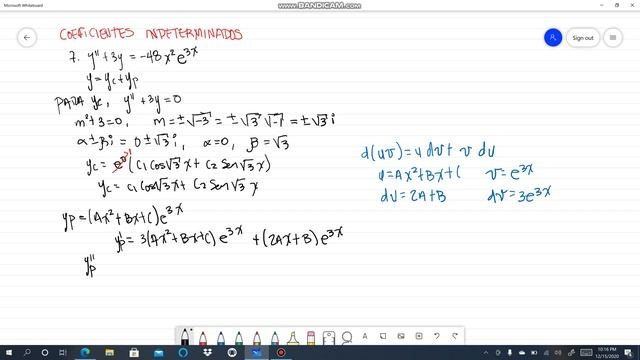 Microsoft Whiteboard
WWW.BANDICAM.COM
Sign out
COEFICIENTES INDETERMINADOS
7. y'' + 3y = -48x²e³ˣ
y = yc + yp
PARA yc, y'' + 3y = 0
m² + 3 = 0, m = ±√-3 = ±√3 √-1 = ±√3 i
α ± βi = 0 ± √3 i, α = 0, β = √3
yc = (C1 Cos√3 x + C2 Sen√3 x)
yc = C1 Cos√3 x + C2 Sen√3 x
yp = (Ax² + Bx + C) e³ˣ
y'p = 3(Ax² + Bx + C) e³ˣ + (2Ax + B) e³ˣ
y''p
d(uv) = u dv + v du
u = Ax² + Bx + C v = e³ˣ
du = 2A + B dv = 3e³ˣ
10:16 PM
12/15/2020